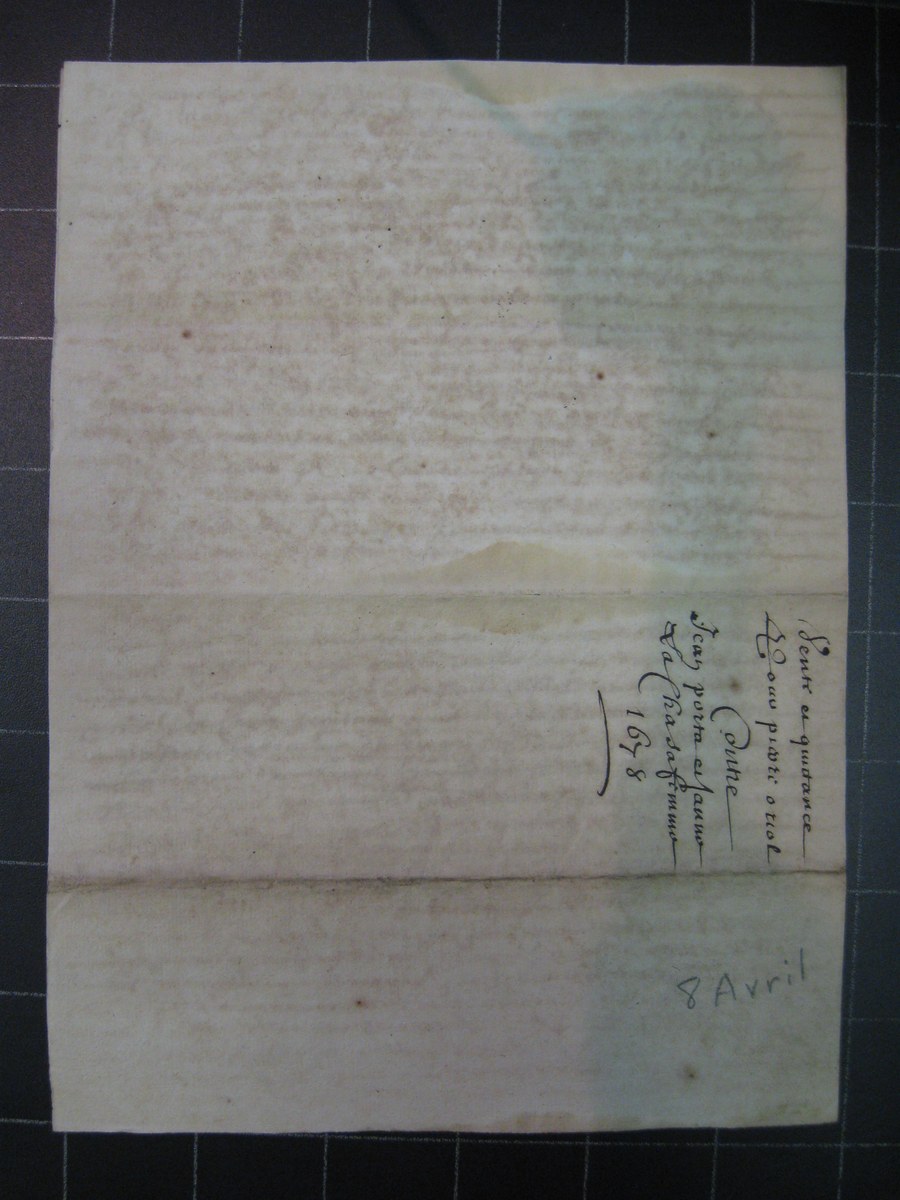 Vente et quitance
pour pierre oriol
Contre
Jean porta et Janno
La Chasa femme
1678
8 Avril